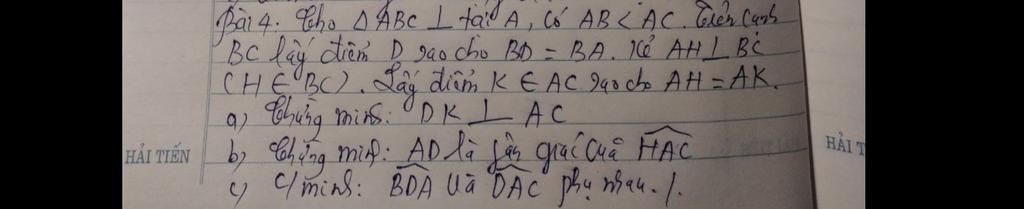 Bài 4. Cho △ ABC ⊥ tại A, Có AB < AC. Trên Cạnh
BC lấy điểm D sao cho BD = BA. Kẻ AH ⊥ BC
(H ∈ BC). Lấy điểm K ∈ AC sao cho AH = AK.
a) Chứng minh: DK ⊥ AC
HẢI TIẾN b) Chứng minh: AD là fân giác Của \widehat{HAC} HẢI T
c) C/minh: \widehat{BDA} Và \widehat{DAC} phụ nhau./.